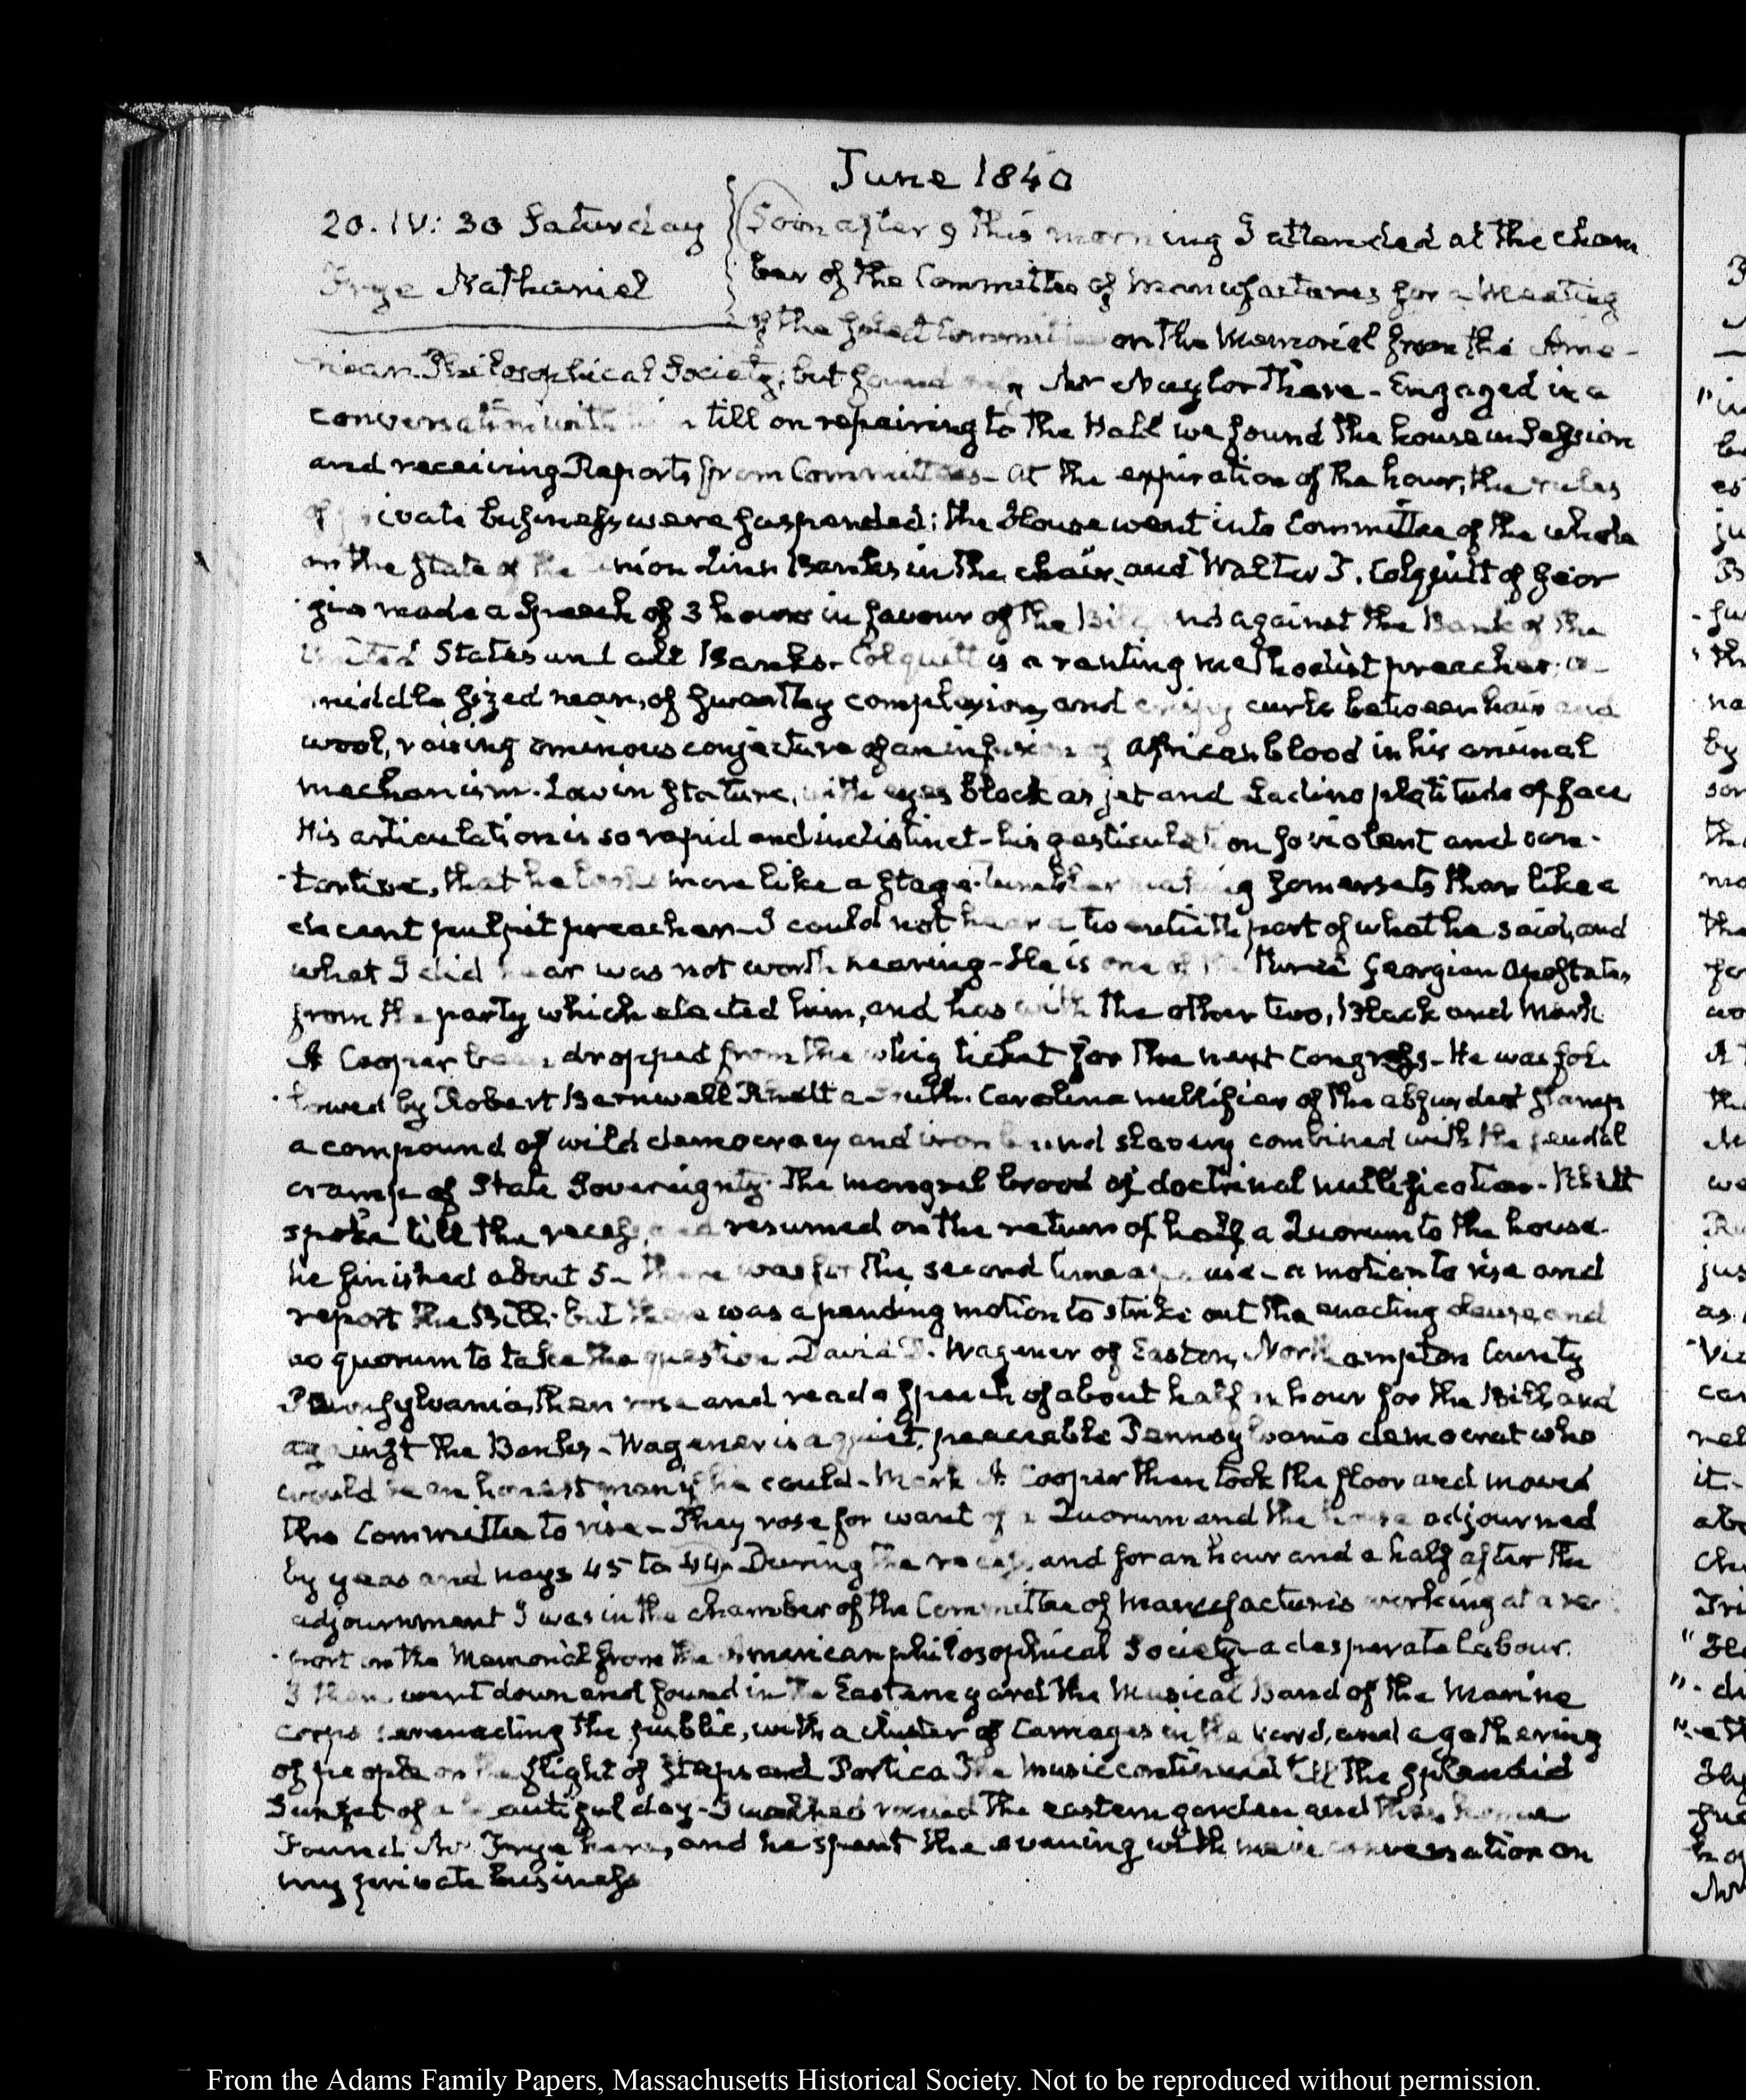 June 1840
20. IV: 30 Saturday
Frye Nathaniel
Soon after 9 this morning I attended at the cham
ber of the Committee of Manufactures for a Meeting
of the Select Committee on the Memorial from the Ame-
rican Philosophical Society; but found only Mr Naylor there - Engaged in a
conversation with him till on repairing to the Hall we found the house in Session
and receiving Reports from Committees - At the expiration of the hour, the rules
of private business were suspended; the House went into Committee of the whole
on the State of the Union Linn Banks in the chair, and Walter T. Colquitt of Geor
gia made a Speech of 3 hours in favour of the Bill and against the Bank of the
United States and all Banks - Colquitt is a ranting methodist preacher; a
middle sized man, of swarthy complexion, and crispy curls between hair and
wool, raising ominous conjecture of an infusion of African blood in his animal
mechanism. Low in Stature, with eyes black as jet and Ladino platitude of face
His articulation is so rapid and indistinct - his gesticulation so violent and con-
tortive, that he looks more like a stage-tumbler making somersets than like a
decent pulpit preacher - I could not hear a twentieth part of what he said, and
what I did hear was not worth hearing - He is one of the three Georgian Apostates
from the party which elected him, and has with the other two, Black and Mark
A Cooper been dropped from the whig ticket for the next Congress - He was fol-
lowed by Robert Barnwell Rhett a South Carolina nullifier of the absurdest stamp
a compound of wild democracy and iron bound slavery combined with the feudal
cramp of State Sovereignty. The mongrel brood of doctrinal nullification - Rhett
spoke till the recess, and resumed on the return of half a Quorum to the house.
he finished about 5 - There was for the second time a pause - a motion to rise and
report the Bill; but there was a pending motion to strike out the enacting clause, and
no quorum to take the question. David D. Wagener of Easton, Northampton County
Pennsylvania, then rose and read a speech of about half an hour for the Bill and
against the Banks - Wagener is a quiet, peaceable Pennsylvania democrat who
would be an honest man if he could - Mark A Cooper then took the floor and moved
the Committee to rise - They rose for want of a Quorum and the house adjourned
by yeas and nays 45 to 44. During the recess, and for an hour and a half after the
adjournment I was in the chamber of the Committee of Manufactures working at a re-
port on the Memorial from the American philosophical Society - a desperate labour.
I then went down and found in the Eastern yard the Musical Band of the Marine
Corps serenading the public, with a cluster of Carriages in the yard, and a gathering
of people on the flight of steps and Portico The music continued till the splendid
Sunset of a beautiful day - I walked round the eastern garden and then home
Found Mr Frye here, and he spent the evening with me in conversation on
my private business
From the Adams Family Papers, Massachusetts Historical Society. Not to be reproduced without permission.